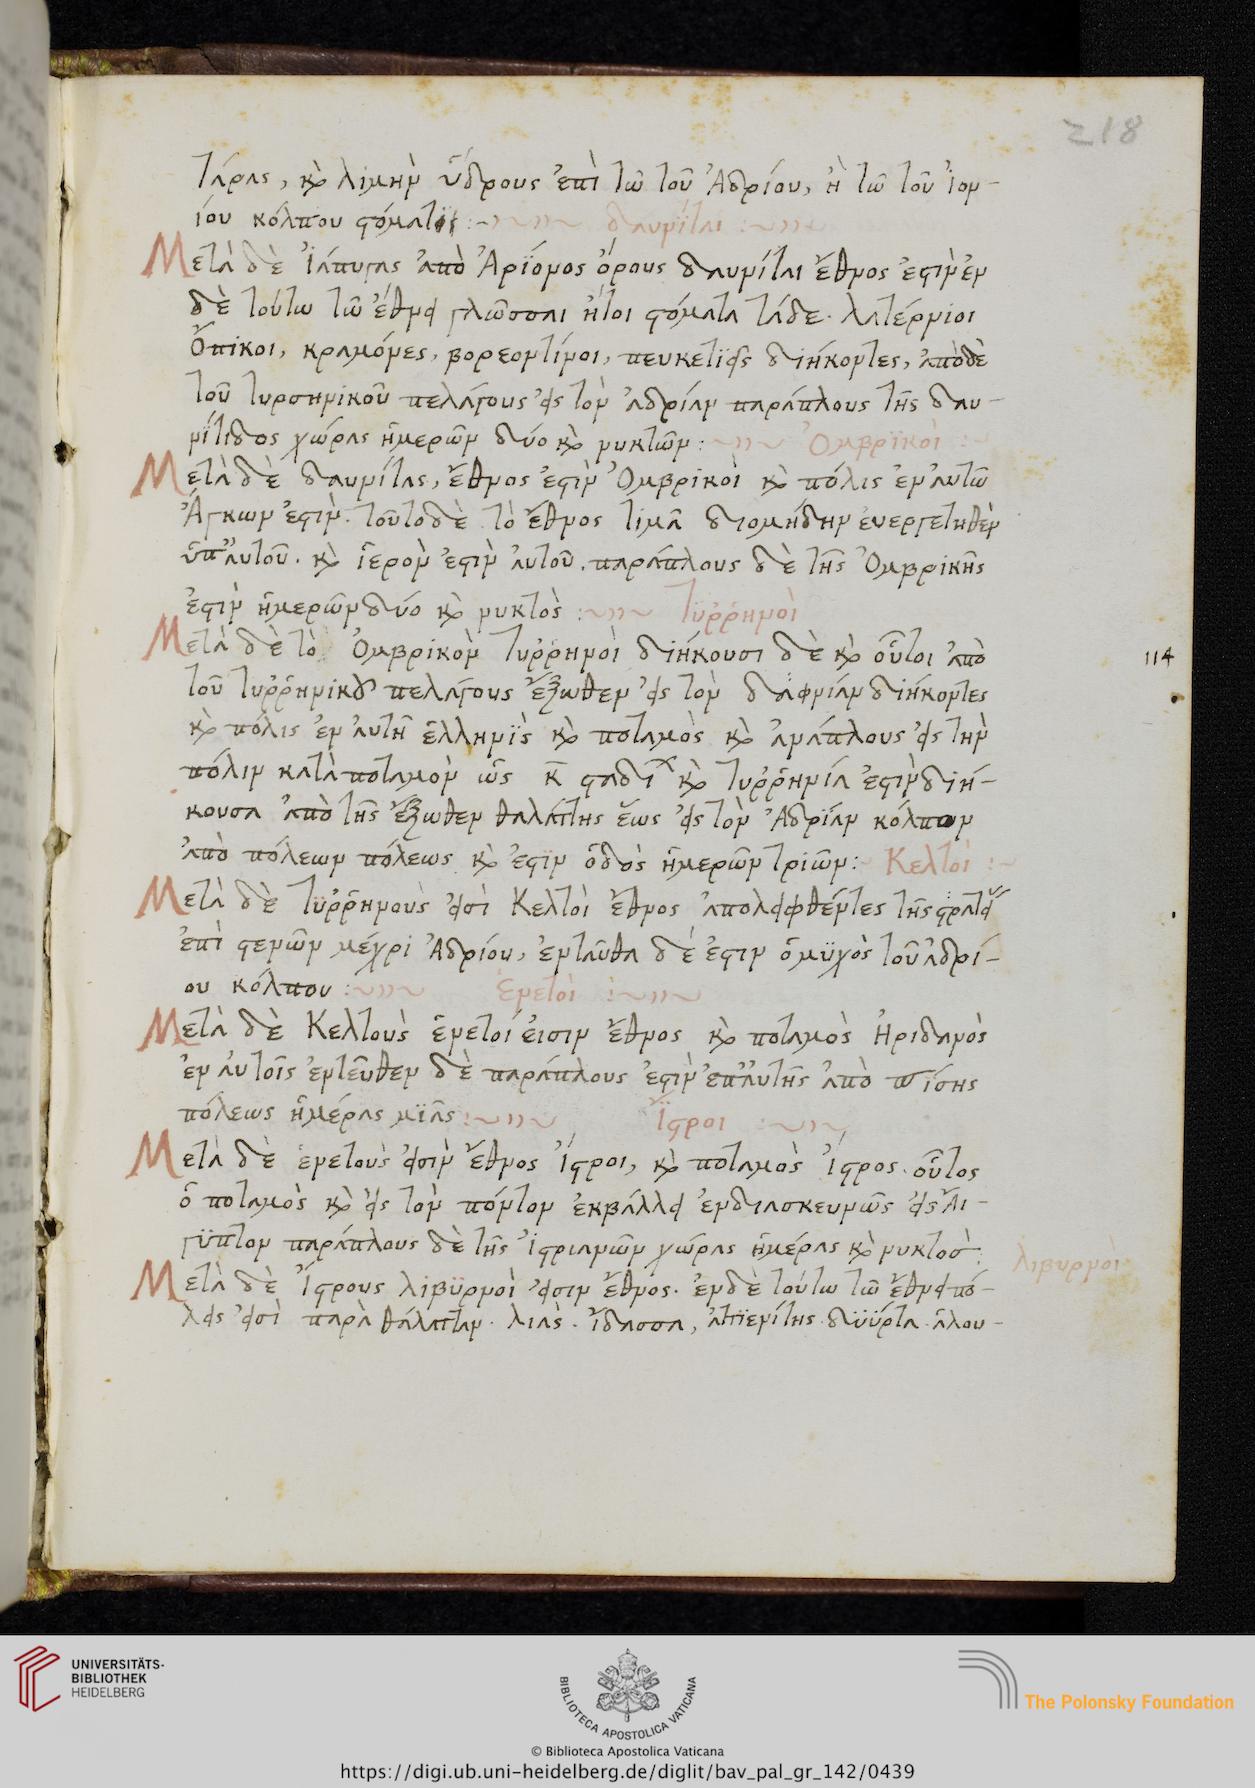 218
Τάρας, καὶ λιμὴν ὑδροῦς ἐπὶ τῶ τοῦ Ἀδρίου, ἢ τῶ τοῦ ἰον-
ίου κόλπου στόματϊ :- δαυνῖται :~
Μετὰ δὲ Ἰάπυγας ἀπὸ Ἀρίονος ὄρους δαυνίται ἔθνος ἐστὶν ἐν
δὲ τούτω τῶ ἔθνει γλῶσσαι ἤτοι στόματα τάδε· λατέρνιοι
Ὄπικοι, κραμόνες, βορεοντίνοι, πευκετϊεῖς διήκοντες, ἀπὸ δὲ
τοῦ τυρσηνικοῦ πελάγους εἰς τὸν ἀδρίαν παράπλους τῆς δαυ-
νϊτιδος χώρας ἡμερῶν δύο καὶ νυκτῶν: Ὀμβρϊκοὶ :
Μετὰ δὲ δαυνίτας, ἔθνος ἐστὶν Ὀμβρικοὶ καὶ πόλις ἐν αὐτῶ
Ἄγκων ἐστίν. τοῦτο δὲ τὸ ἔθνος τιμᾶ διομήδην ἐυεργετηθὲν
ὑπ' αὐτοῦ· καὶ ἱερόν ἐστιν αὐτοῦ. παράπλους δὲ τῆς Ὀμβρικῆς
ἐστὶν ἡμερῶν δύο καὶ νυκτὸς :~ Τϋῤῥηνοὶ
Μετὰ δὲ τὸ Ὀμβρικὸν τυῤῥηνοὶ διήκουσι δὲ καὶ οὗτοι ἀπὸ
114
τοῦ τυῤῥηνικοῦ πελάγους ἔξωθεν εἰς τὸν δαφνίαν διήκοντες
καὶ πόλις ἐν αὐτῆ ἑλληνϊς καὶ ποταμὸς καὶ ἀνάπλους εἰς τὴν
πόλιν κατὰ ποταμὸν ὡς κ̄ σταδί καὶ τυῤῥηνία ἐστὶν διή-
κουσα ἀπὸ τῆς ἔξωθεν θαλάττης ἕως εἰς τὸν Ἀδρϊαν κόλπον
ἀπὸ πόλεων πόλεως καὶ ἐστϊν ὁδὸς ἡμερῶν τριῶν: Κελτοὶ :
Μετὰ δὲ τϋῤῥηνοὺς εἰσὶ Κελτοὶ ἔθνος ἀπολειφθέντες τῆς στρατεί
ἐπὶ στενῶν μέχρι Ἀδρίου, ἐνταῦθα δέ ἐστιν ὁ μϋχὸς τοῦ ἀδρί-
ου κόλπου :~ ἐνετοὶ :~
Μετὰ δὲ Κελτοὺς ἑνετοί ἐισιν ἔθνος καὶ ποταμὸς Ἠριδανὸς
ἐν αὐτοῖς ἐντεῦθεν δὲ παράπλους ἐστὶν ἐπ' αὐτῆς ἀπὸ πίσης
πόλεως ἡμέρας μϊᾶς :~ Ἴστροι :~
Μετὰ δὲ ἑνετοὺς εἰσὶν ἔθνος Ἴστροι, καὶ ποταμὸς Ἴστρος. οὗτος
ὁ ποταμὸς καὶ εἰς τὸν πόντον ἐκβάλλει ἐνδιασκευνῶς εἰς Αἴ-
γϋπτον παράπλους δὲ τῆς Ἰστριανῶν χώρας ἡμέρας καὶ νυκτοσ: λιβυρνοὶ
Μετὰ δὲ Ἴστρους λιβϋρνοὶ εἰσιν ἔθνος. ἐν δὲ τούτω τῶ ἔθνει πό-
λεις εἰσὶ παρὰ θάλατταν. λιὰς. ἴδασσα, ἀττϊενίτης. δϋϋρτα. ἄλου-
UNIVERSITÄTS-
BIBLIOTHEK
HEIDELBERG
BIBLIOTECA APOSTOLICA VATICANA
The Polonsky Foundation
© Biblioteca Apostolica Vaticana
https://digi.ub.uni-heidelberg.de/diglit/bav_pal_gr_142/0439